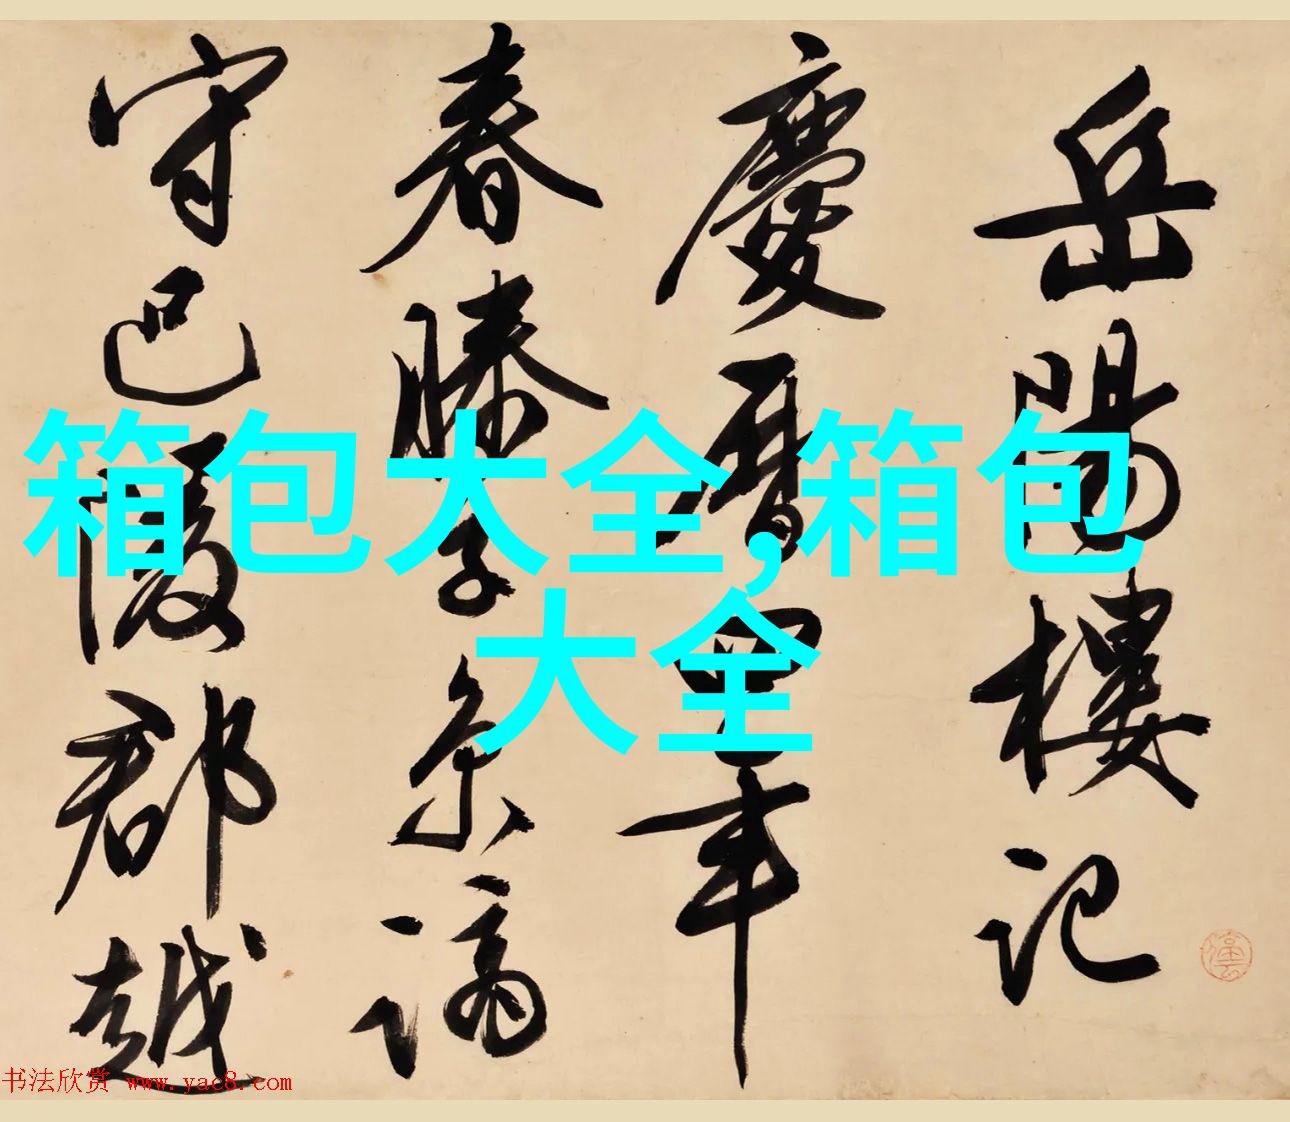 岳陽樓記
慶曆四年
春滕子京謫
守巴陵郡越
箱包大全,箱包
大全
书法欣赏 www.yac8.com